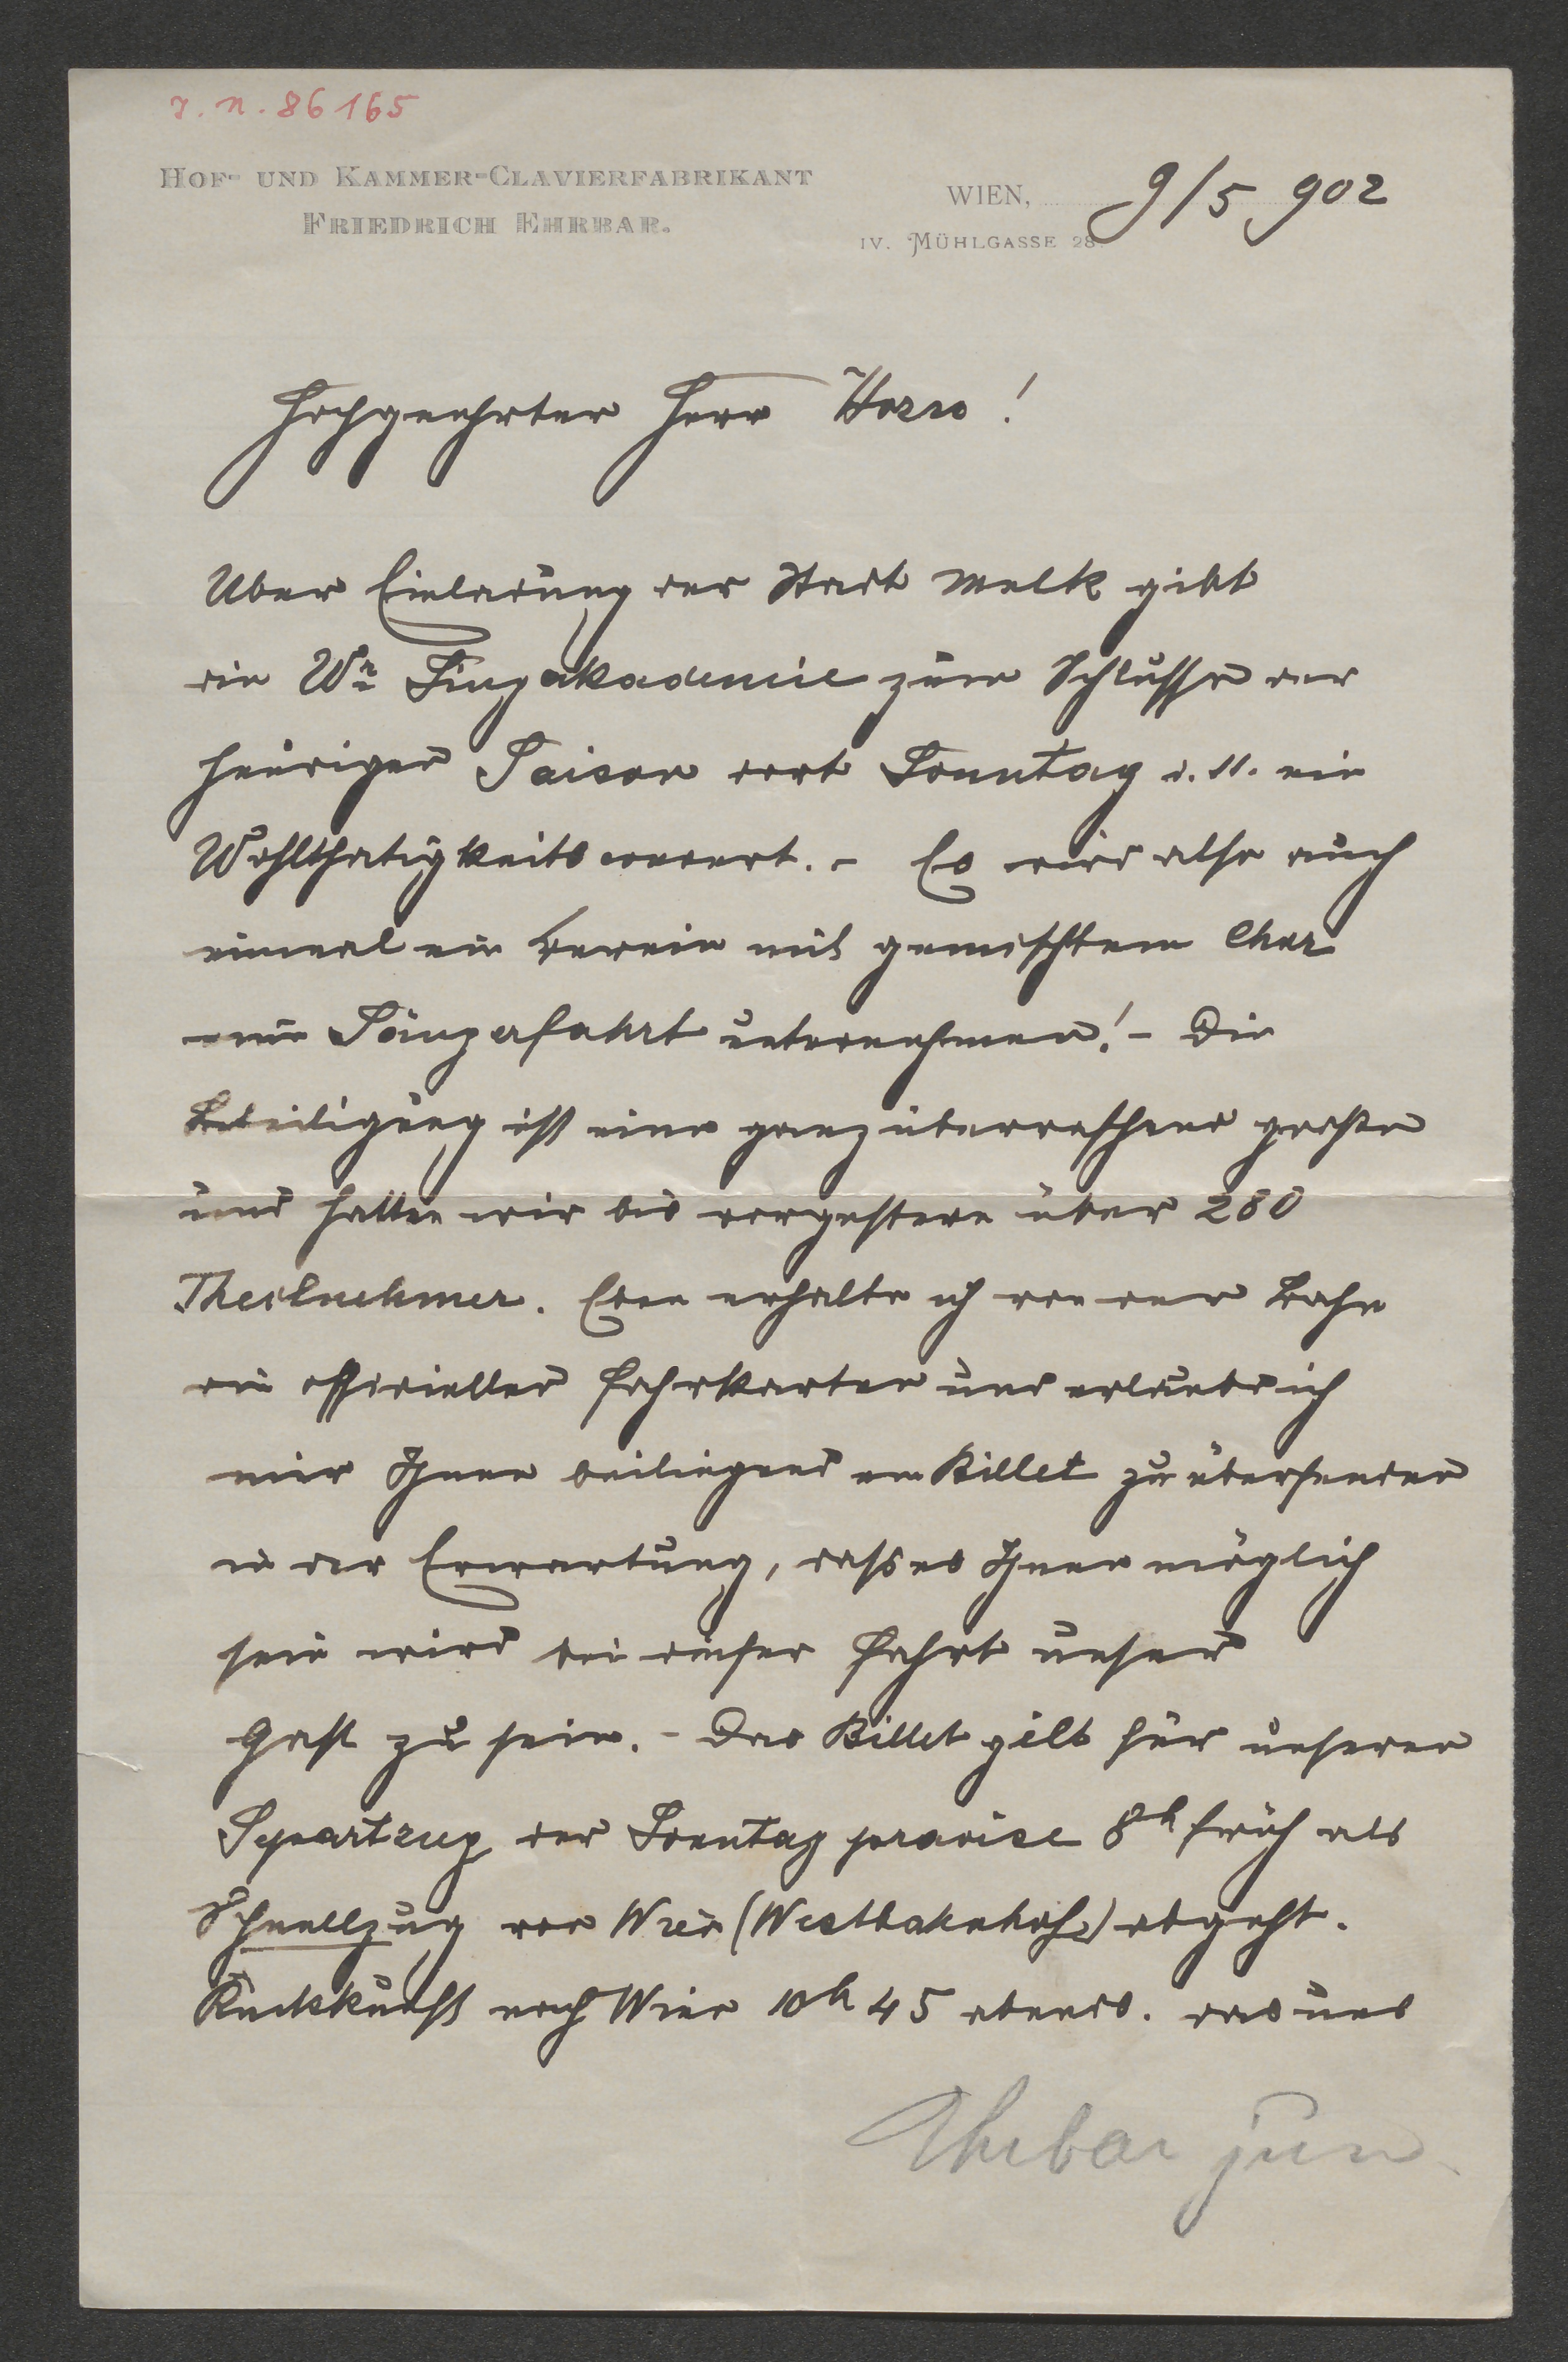 J. N. 86165
HOF- UND KAMMER-CLAVIERFABRIKANT
FRIEDRICH EHRBAR.
WIEN, 9/5 902
IV. MÜHLGASSE 28.
Hochgeehrter Herr
Über Einladung der Stadt Melk gibt
die Wr Singakademie zum Schlusse der
heurigen Saison dort Sonntag d. 11. ein
Wohlthätigkeitsconcert. – Es wird also auch
einmal ein Verein mit gemischtem Chor
eine Sängerfahrt unternehmen! – Die
Beteiligung ist eine ganz überraschend große
und hatten wir bis vorgestern über 280
Theilnehmer. Eben erhalte ich von der Bahn
die officiellen Fahrkarten und erlaube ich
mir Ihnen beiliegend ein Billet zu übersenden
in der Erwartung, daß es Ihnen möglich
sein wird bei dieser Fahrt unser
Gast zu sein. – Das Billet gilt für unseren
Separatzug der Sonntag präcise 8h früh als
Schnellzug von Wien (Westbahnhof) abgeht.
Rückkunft nach Wien 10h 45 abends. das uns
Ehrbar jun